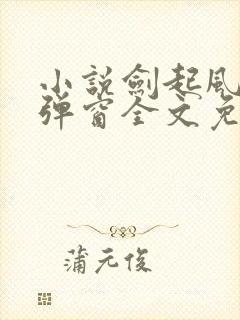 小説劍起風
彈窗全文免
蒲元俊